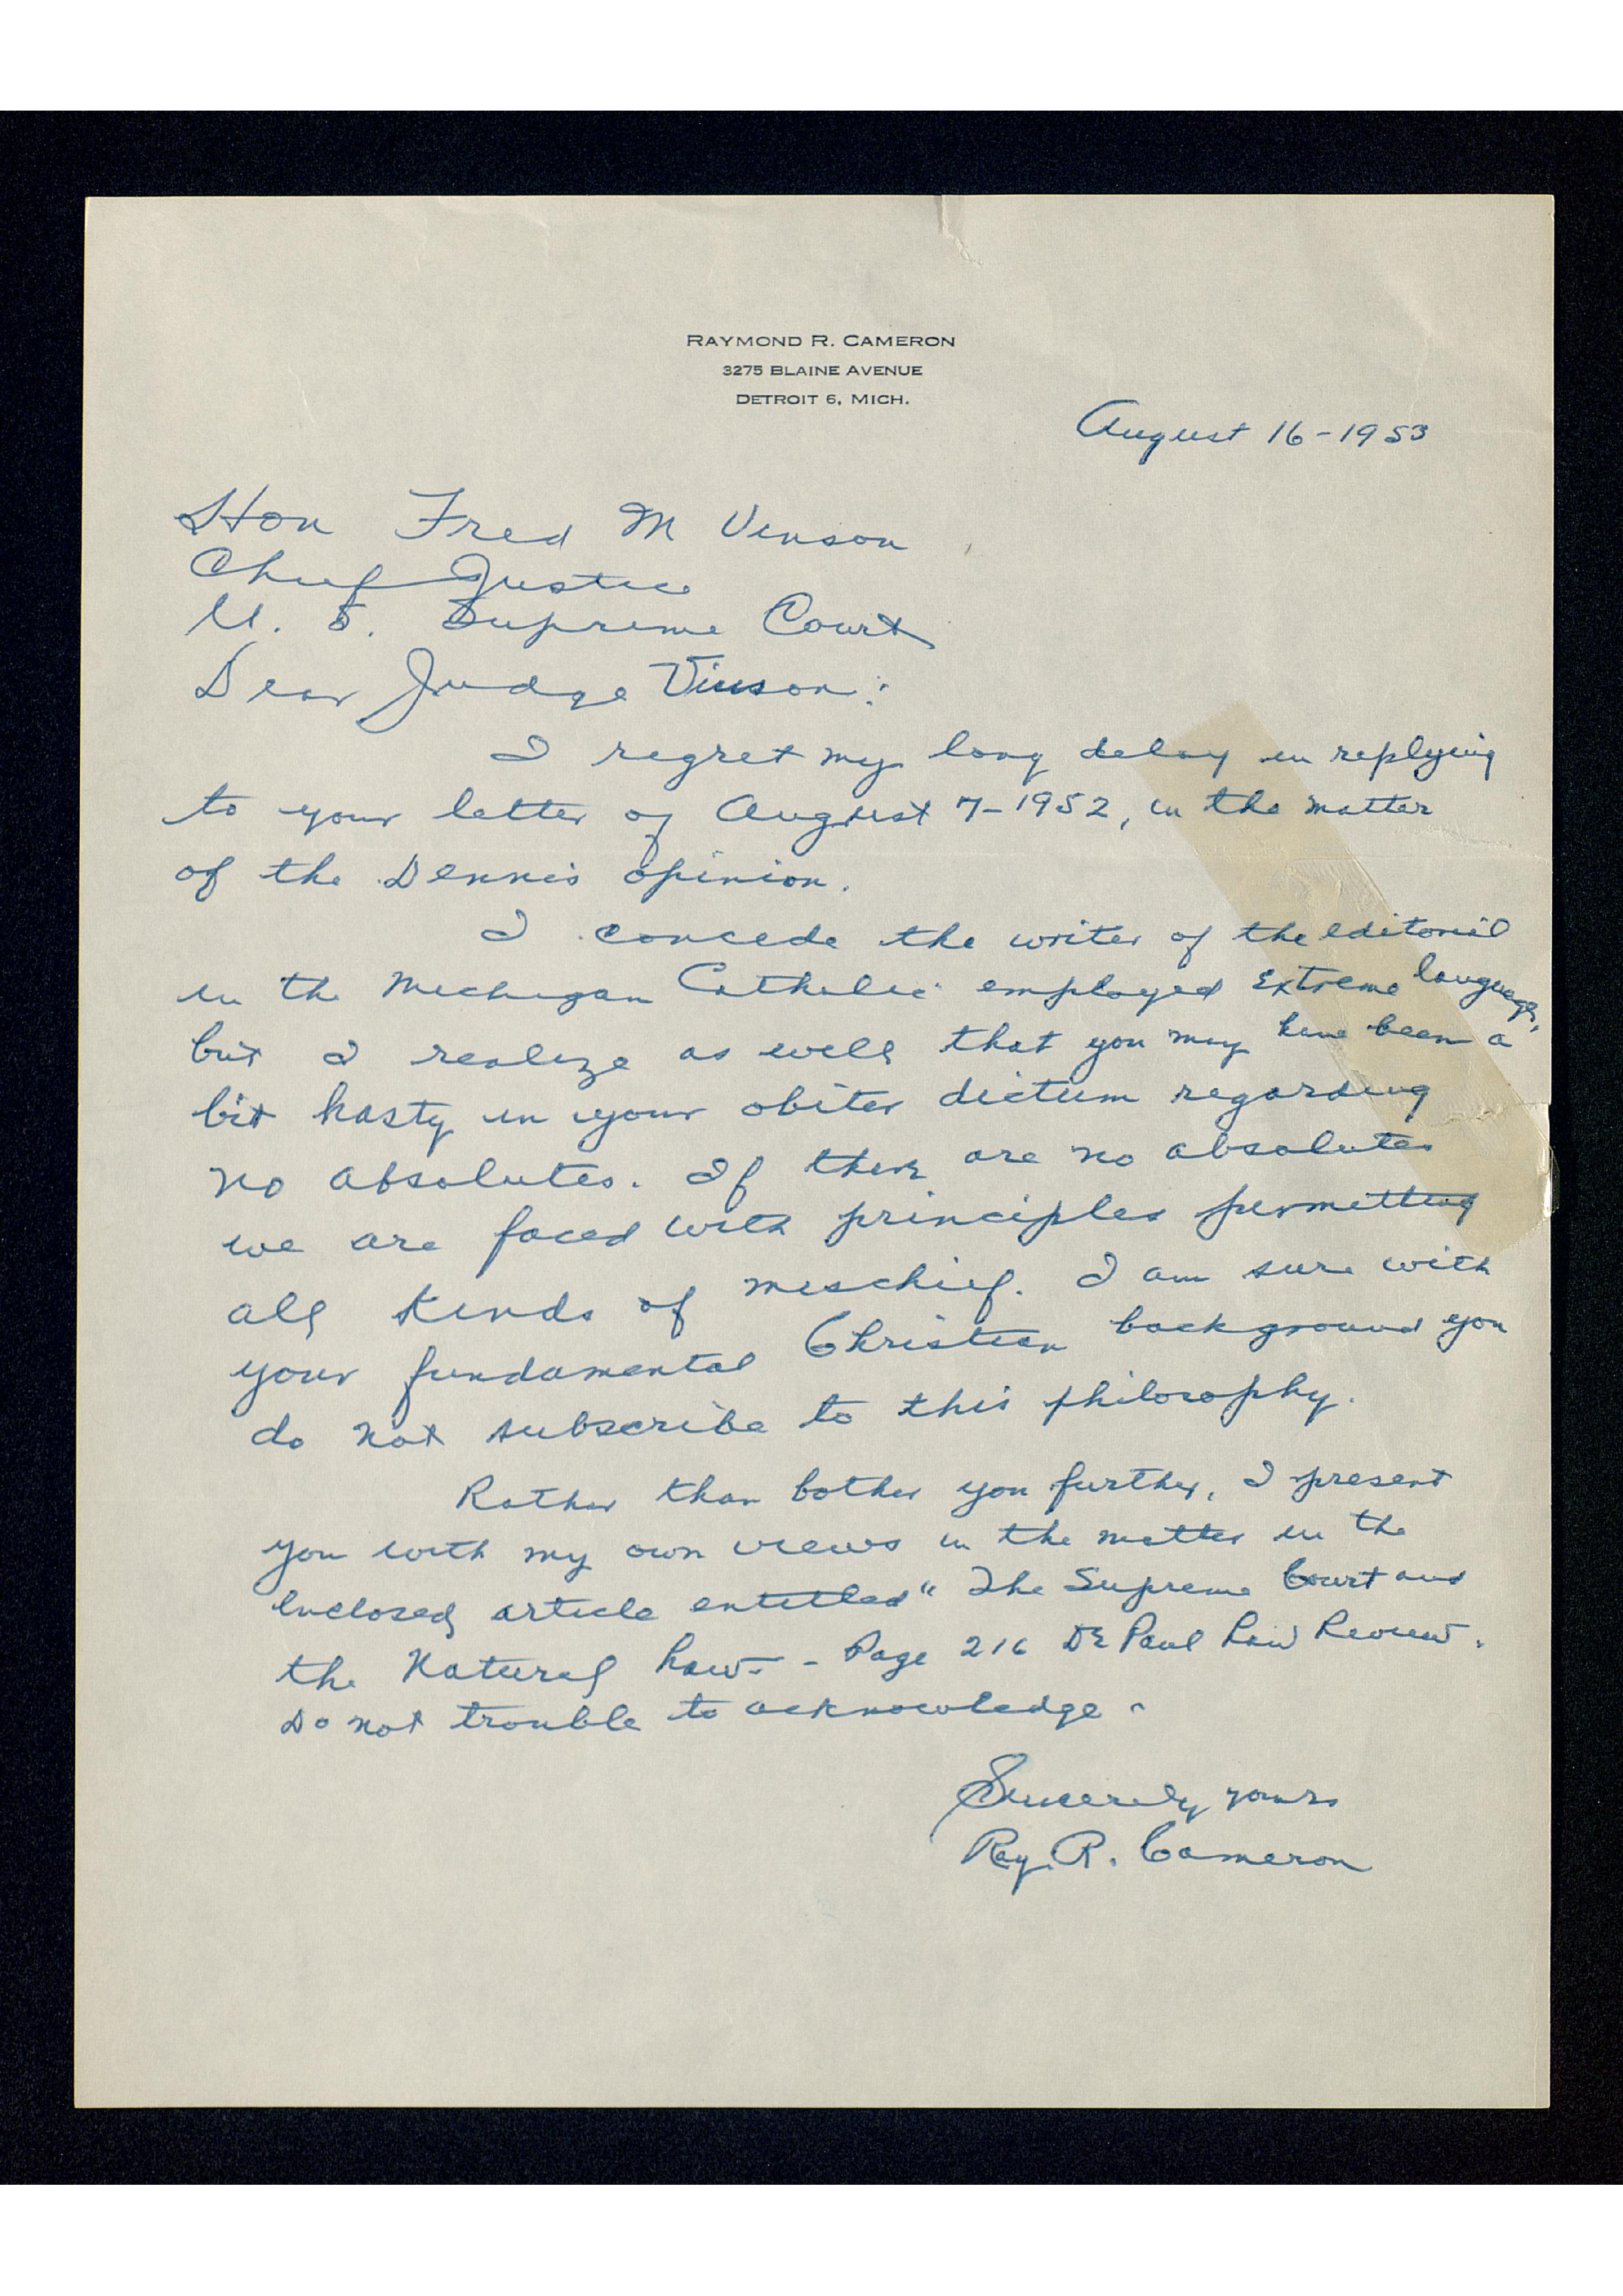 RAYMOND R. CAMERON
3275 BLAINE AVENUE
DETROIT 6, MICH.
August 16-1953
Hon Fred M Vinson
Chief Justice
U. S. Supreme Court
Dear Judge Vinson:
I regret my long delay in replying
to your letter of August 7-1952, in the matter
of the Dennis opinion.
I concede the writer of the editorial
in the Michigan Catholic employed extreme language,
but I realize as well that you may have been a
bit hasty in your obiter dictum regarding
no absolutes. If there are no absolutes
we are faced with principles permitting
all kinds of mischief. I am sure with
your fundamental Christian background you
do not subscribe to this philosophy.
Rather than bother you further, I present
you with my own views in the matter in the
enclosed article entitled "The Supreme Court and
the Natural Law - - Page 216 De Paul Law Review.
Do not trouble to acknowledge -
Sincerely yours
Ray. R. Cameron